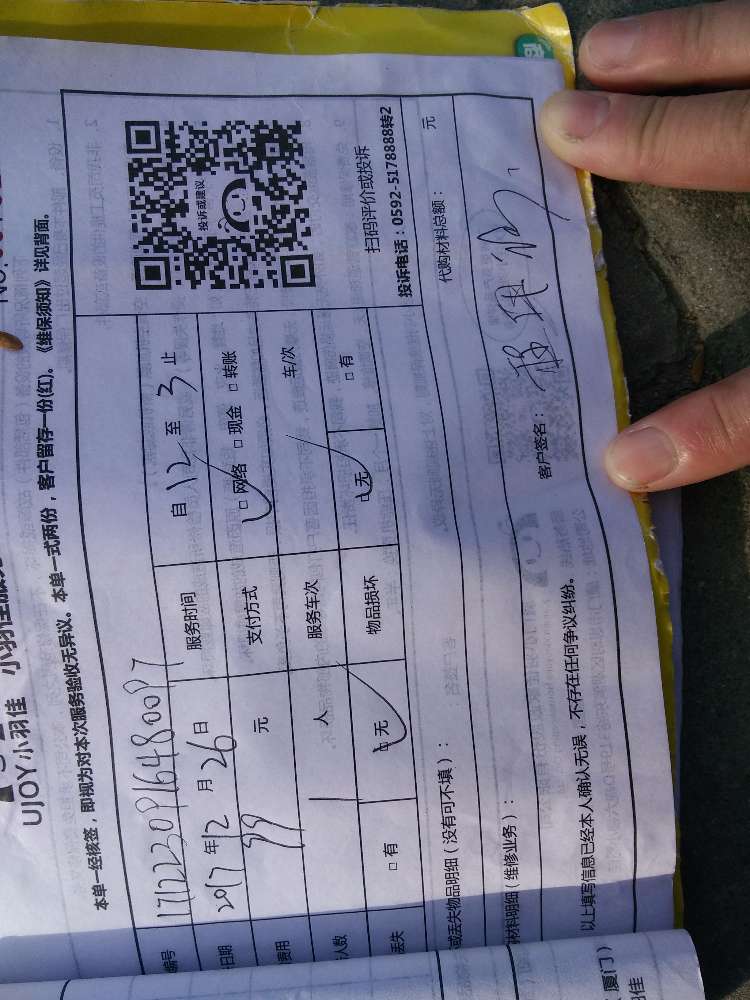 UJOY小羽佳
本单一经核签，即视为对本次服务验收无异议。本单一式两份，客户留存一份(红)。《维保须知》详见背面。
编号 1712230916480097 服务时间 自 12 至 3 止
日期 2017 年 12 月 26 日 支付方式 □网络 □现金 □转账
费用 99 元 服务车次 车/次
人数 1 人 物品损坏 □无 □有
丢失 □有 □无
投诉或建议
扫码评价或投诉
投诉电话：0592-5178888转2
或丢失物品明细（没有可不填）：
材料明细（维修业务）： 代购材料总额： 元
以上填写信息已经本人确认无误，不存在任何争议纠纷。 客户签名：
厦门）
佳